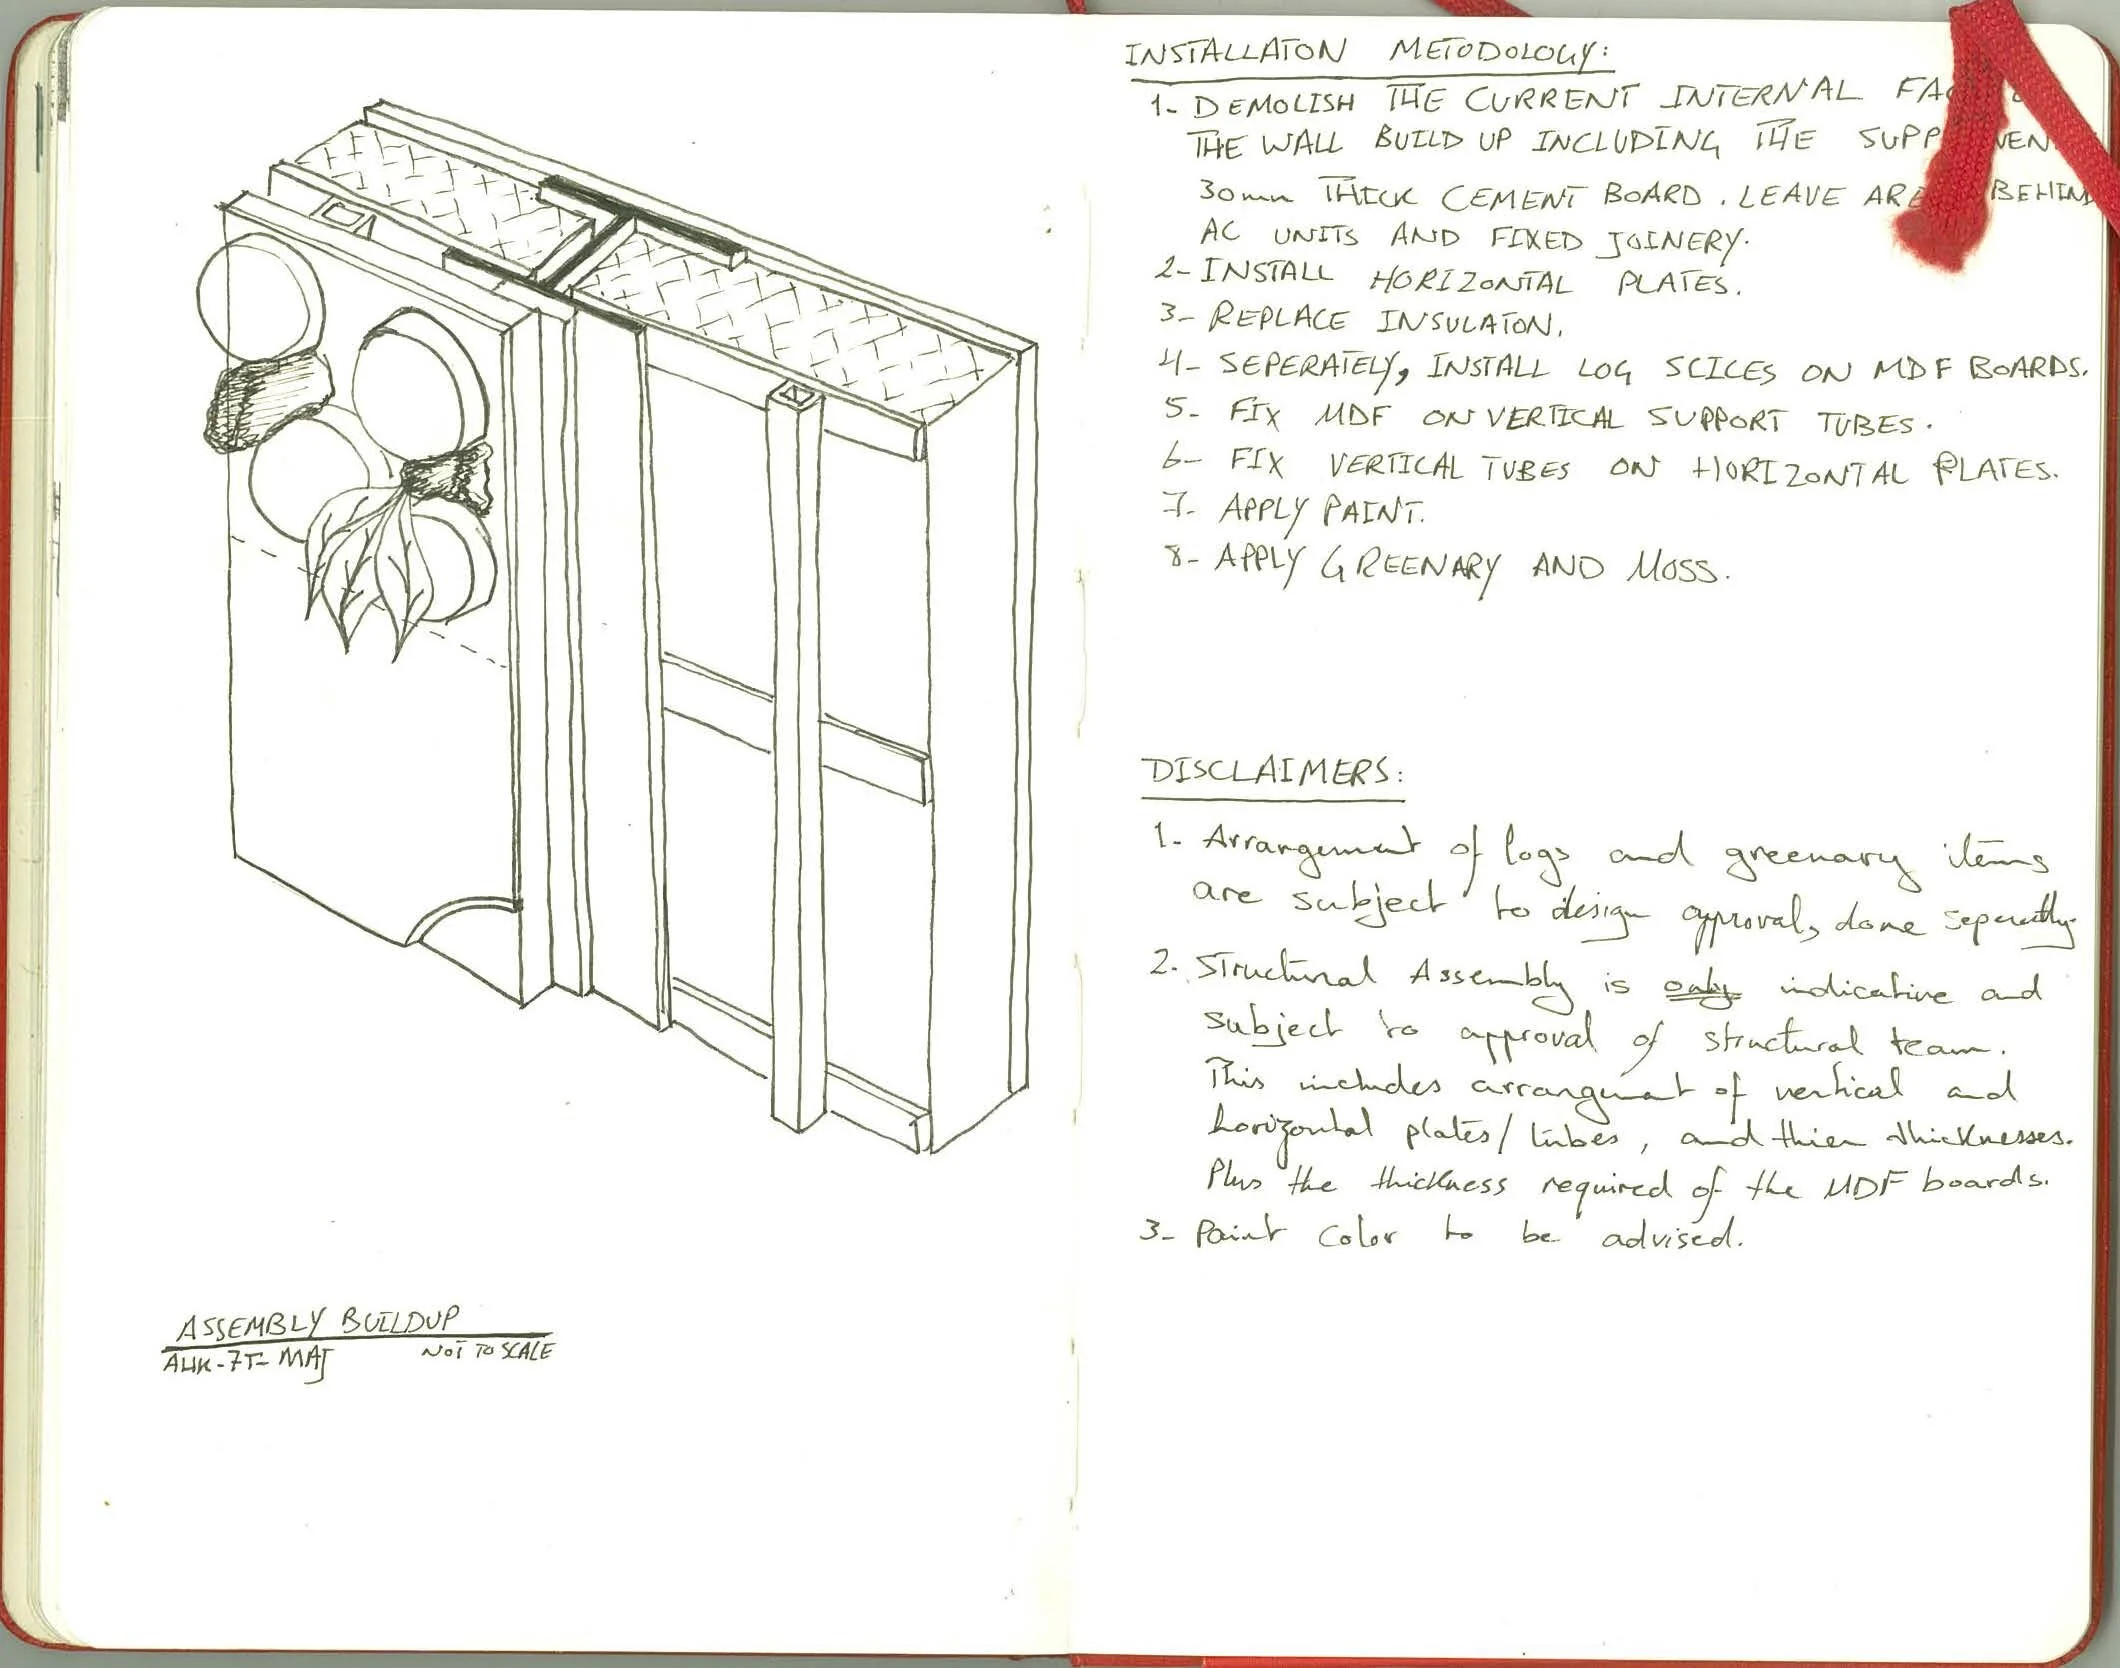 ASSEMBLY BUILDUP
AHK-7T-MAJ NOT TO SCALE
INSTALLATON METODOLOGY:
1- DEMOLISH THE CURRENT INTERNAL
THE WALL BUILD UP INCLUDING THE
30mm THICK CEMENT BOARD. LEAVE BEHIND
AC UNITS AND FIXED JOINERY.
2- INSTALL HORIZONTAL PLATES.
3- REPLACE INSULATON.
4- SEPERATELY, INSTALL LOG SCICES ON MDF BOARDS.
5- FIX MDF ON VERTICAL SUPPORT TUBES.
6- FIX VERTICAL TUBES ON HORIZONTAL PLATES.
7- APPLY PAINT.
8- APPLY GREENARY AND MOSS.
DISCLAIMERS:
1- Arrangement of logs and greenary items
are subject to design approval, done seperatly.
2- Structural Assembly is only indicative and
subject to approval of structural team.
This includes arrangement of vertical and
horizontal plates/tubes, and thier thicknesses.
Plus the thickness required of the MDF boards.
3- Paint color to be advised.